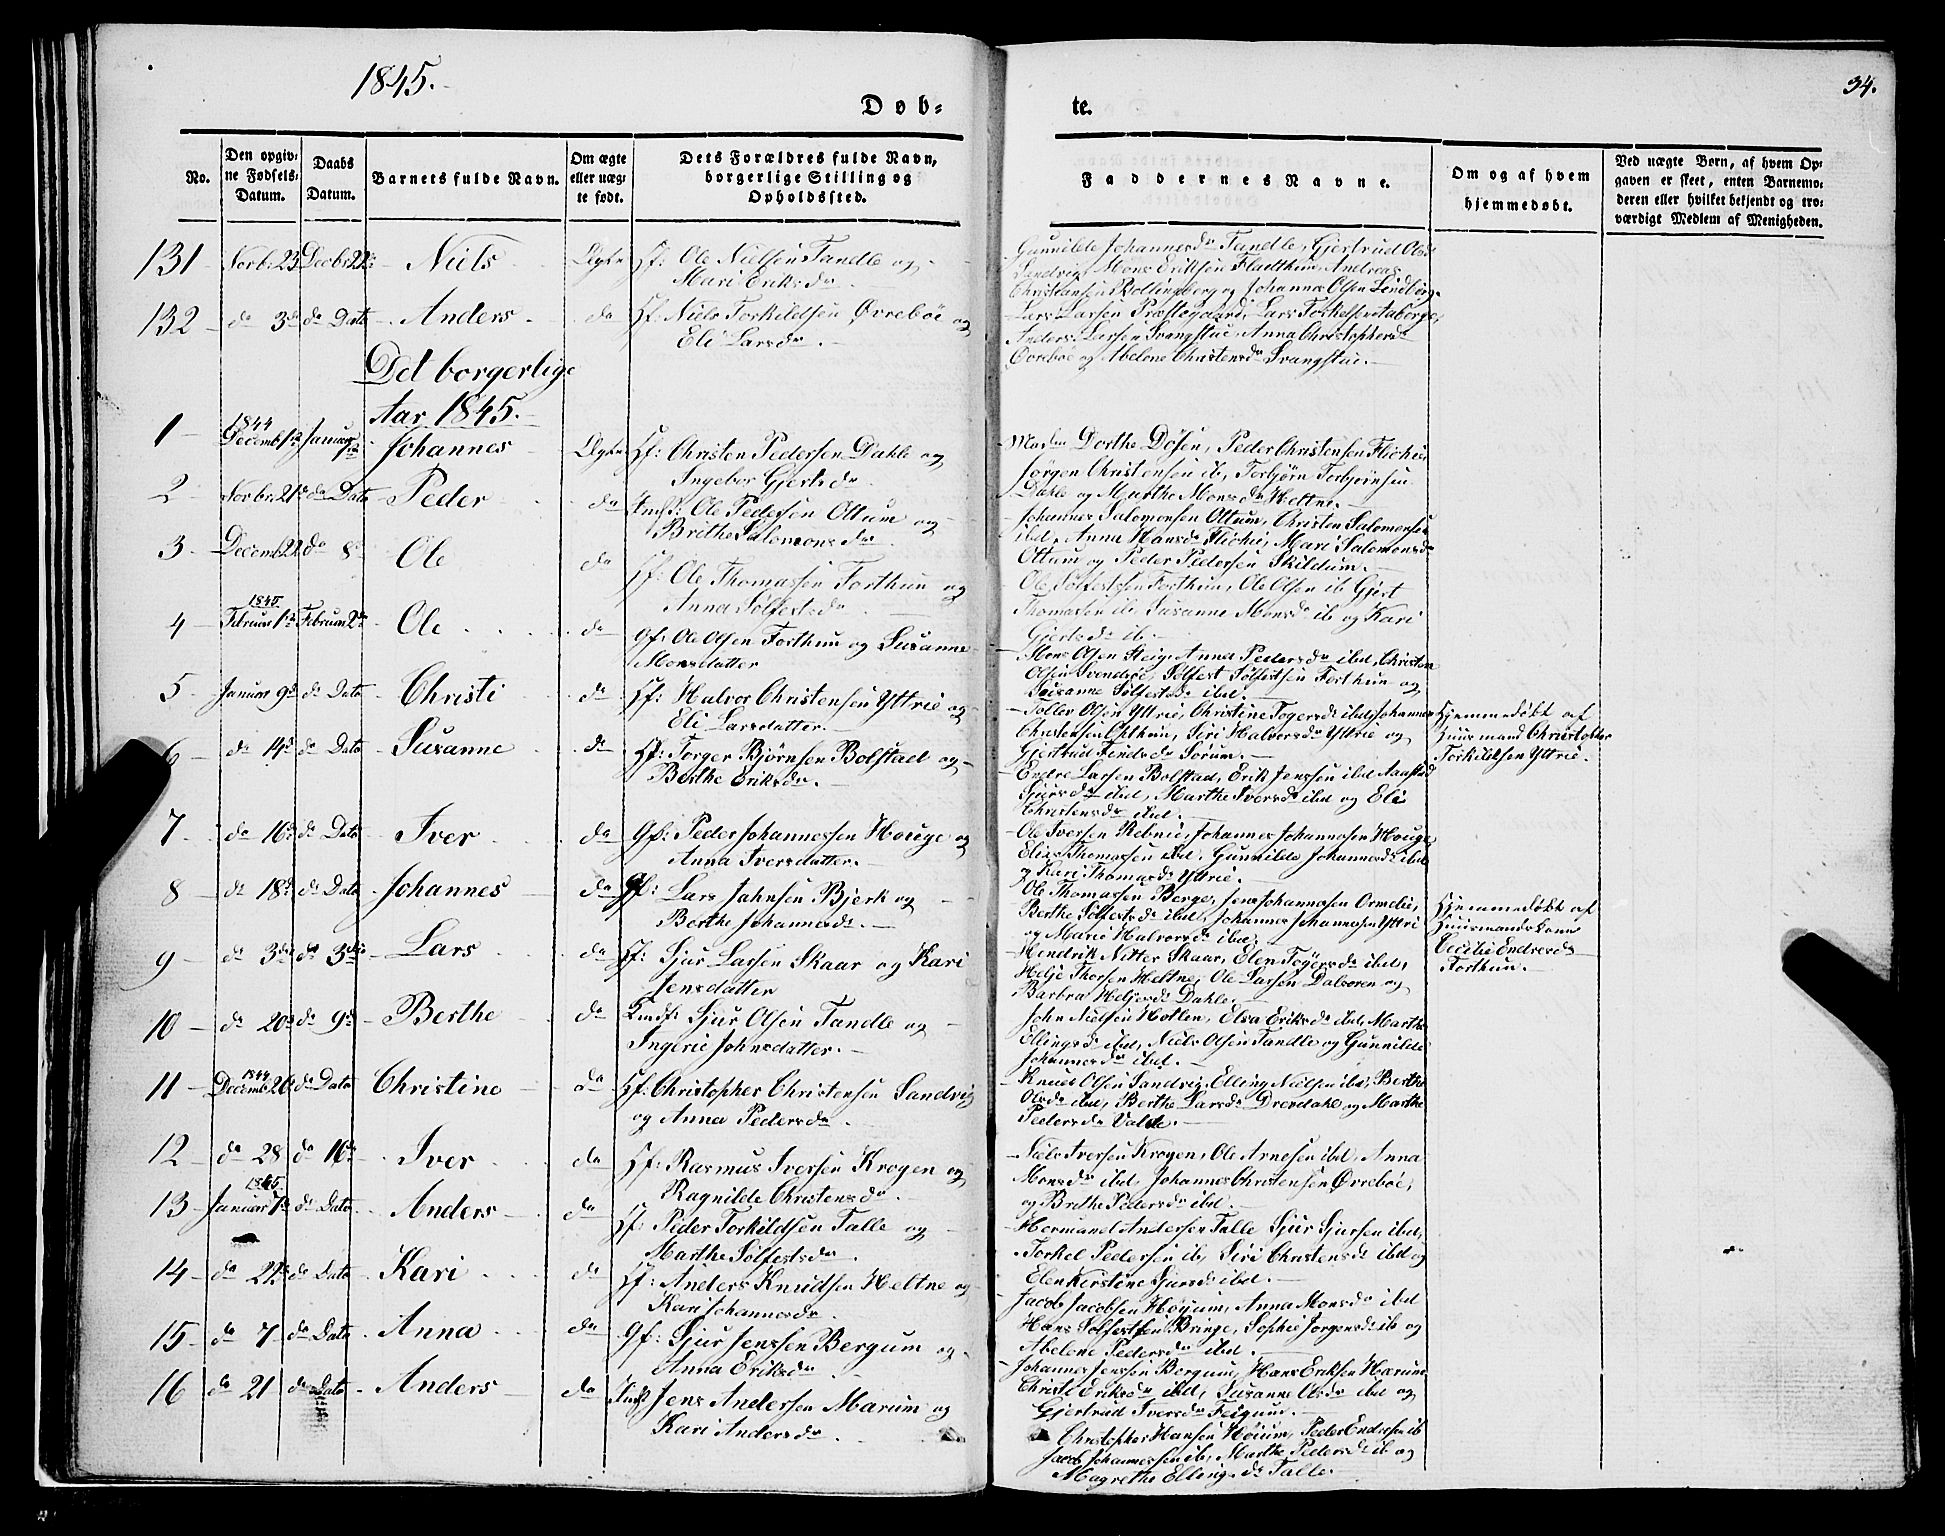 1845.
34.
Døb-
te.
No.
Den opgiv-
ne Fødsels-
Datum.
Daabs
Datum.
Barnets fulde Navn.
Om ægte
eller uæg-
te født.
Dets Forældres fulde Navn,
borgerlige Stilling og
Opholdssted.
Faddernes Navne.
Om og af hvem
hjemmedøbt.
Ved uægte Børn, af hvem Op-
gaven er skeet, enten Barnemo-
deren eller hvilket bekjendt og tro-
værdigt Medlem af Menigheden.
131 Novbr 23 Decbr 22 Niels Ægte Gf: Ole Nielsen Tandle og
Mari Eriksdr.
Gunnilde Johannesdr Tandle, Gjertrud Olsdr
Sandvig, Mons Eriksen Fladthun, Andreas
Christensen Bollingberg og Johannes Olsen Lindborg.
132 do 3de do Dato Anders do Gf: Niels Torkildsen Øvrebøe og
Eli Larsdr.
Lars Larsen Præstegaard, Lars Torkelsen Aaberge,
Anders Larsen Svangstue, Anna Christophersdr
Øvrebøe og Abelone Christensdr Svangstue.
Det borgerlige
Aar 1845.
1 1844 Decemb. 12 Januar 1ste Johannes Ægte Gf: Christen Pedersen Dahle og
Ingebor Gjertsdr
Madm Dorthe Døsen, Peder Christensen Flichie
Jørgen Christensen ib, Torbjørn Torbjørnsen
Dahle og Marthe Monsdr Heltne.
2 Novbr 21 do Dato Peder do Ole Pedersen Ottum og
Brithe Salomonsdr
Johannes Salomonsen Ottum, Christen Salomonsen
ibd, Anna Hansdr Flichie, Mari Salomonsdr
Ottum og Peder Pedersen Skildum.
3 Decemb 22 do 8de Ole do Gf: Ole Thomassen Forthun og
Anna Sølfestsdr
Ole Sølfestsen Forthun, Ole Olsen ib Gjert
Thomasen ib Susanne Monsdr ib og Kari
Gjertsdr ib.
4 1845. Februar 1ste Februar 2de Ole do Gf: Ole Olsen Forthun og Susanne
Monsdatter
Mons Olsen Steig, Anna Pedersdr ibd, Christen
Olsen Svendsøe, Sølfest Sølfestsen Forthun og
Susanne Sølfestsdr ibd.
5 Januar 9de do Dato Christi do Gf: Halvor Christensen Yttrie og
Eli Larsdatter.
Tollev Olsen Yttrie, Christine Togersdr ibd, Johannes
Christensen Ohthun, Siri Halvorsdr Yttrie og
Gjertrud Findsdr Sørum.
Hjemmedøbt af
Huusmand Christopher
Torkildsen Yttrie.
6 do 14de do Dato Susanne do Gf: Torger Bjørnsen Bolstad og
Berthe Eriksdr.
Endre Larsen Bolstad, Erik Jenssen ibd Aaastad
Sjursdr ibd, Marthe Iversdr ibd og Eli
Christensdr ibd.
7 do 16de do Dato Iver do Gf: Peder Johannessen Houge og
Anna Iversdatter.
Ole Iversen Rebnie, Johannes Johannesen Houge,
Elias Thomassen ibd. Gunnilde Johannesdr ibd
og Kari Thomasdr Yttrie.
8 do 18de do Dato Johannes do Gf: Lars Jahnsen Bjerk og
Berthe Johannesdr.
Ole Thomassen Berge, Jens Johannesen Ormelie,
Berthe Sølfestsdr ibd, Johannes Johannesen Yttrie
og Marie Halvorsdr ibd.
Hjemmedøbt af
Huusmandskone
Cecilie Endresdr
Forthun.
9 do 3die do 3die Lars do Gf: Sjur Larsen Skaar og Kari
Jensdatter
Hendrik Nitter Skaar, Elen Togersdr ibd,
Helje Thorsen Heltne, Ole Larsen Dalsøren og
Barbra Heljesdr Dahle.
10 do 20de do 9de Berthe do Sjur Olsen Tandle og
Ingerie Johnsdatter.
John Nielsen Hotlen, Elsa Eriksdr ibd, Marthe
Ellingsdr ibd, Niels Olsen Tandle og Gunnilde
Johannesdr ibd.
11 1844 Decemb. 26 do Dato Christine do Gf: Christopher Christensen Sandvig
og Anna Pedersdr.
Knud Olsen Sandvig, Elling Nielsen ibd, Berthe
Olsdr ibd, Berthe Larsdr Drevdahl og Marthe
Pedersdr Valde.
12 do 28 do 16de Iver do Gf: Rasmus Iversen Krogen og
Ragnilde Christensdr.
Niels Iversen Krogen, Ole Arnesen ibd, Anna
Monsdr ibd, Johannes Christensen Øvrebøe,
og Brithe Pedersdr ibd.
13 1845. Januar 7de do Dato Anders do Gf: Peder Torkildsen Talle og
Marthe Sølfestsdr.
Hermand Andersen Talle, Sjur Sjursen ibd,
Torkel Pedersen ib, Siri Christensdr ibd og
Elen Kirstine Sjursdr ibd.
14 do 22de do Dato Kari do Gf: Anders Knudsen Heltne og
Kari Johannesdr.
Jacob Jacobsen Høyum, Anna Monsdr ibd
Hans Sølfestsen Bringe, Sophie Jørgensdr ib og
Abelone Pedersdr ibd.
15 do 7 do Dato Anna do Gf: Sjur Jenssen Bergum og
Anna Eriksdr
Johannes Jenssen Bergum, Hans Eriksen Harum
Christi Eriksdr ibd, Susanne Olsdr ibd og
Gjertrud Iversdr Feigum.
16 do 21 do Dato Anders do Jens Andersen Marum og
Kari Andersdr.
Christopher Hansen Høium, Peder Endresen ib
Jacob Johannessen ib, Marthe Pedersdr ib og
Magrethe Ellingsdr Talle.